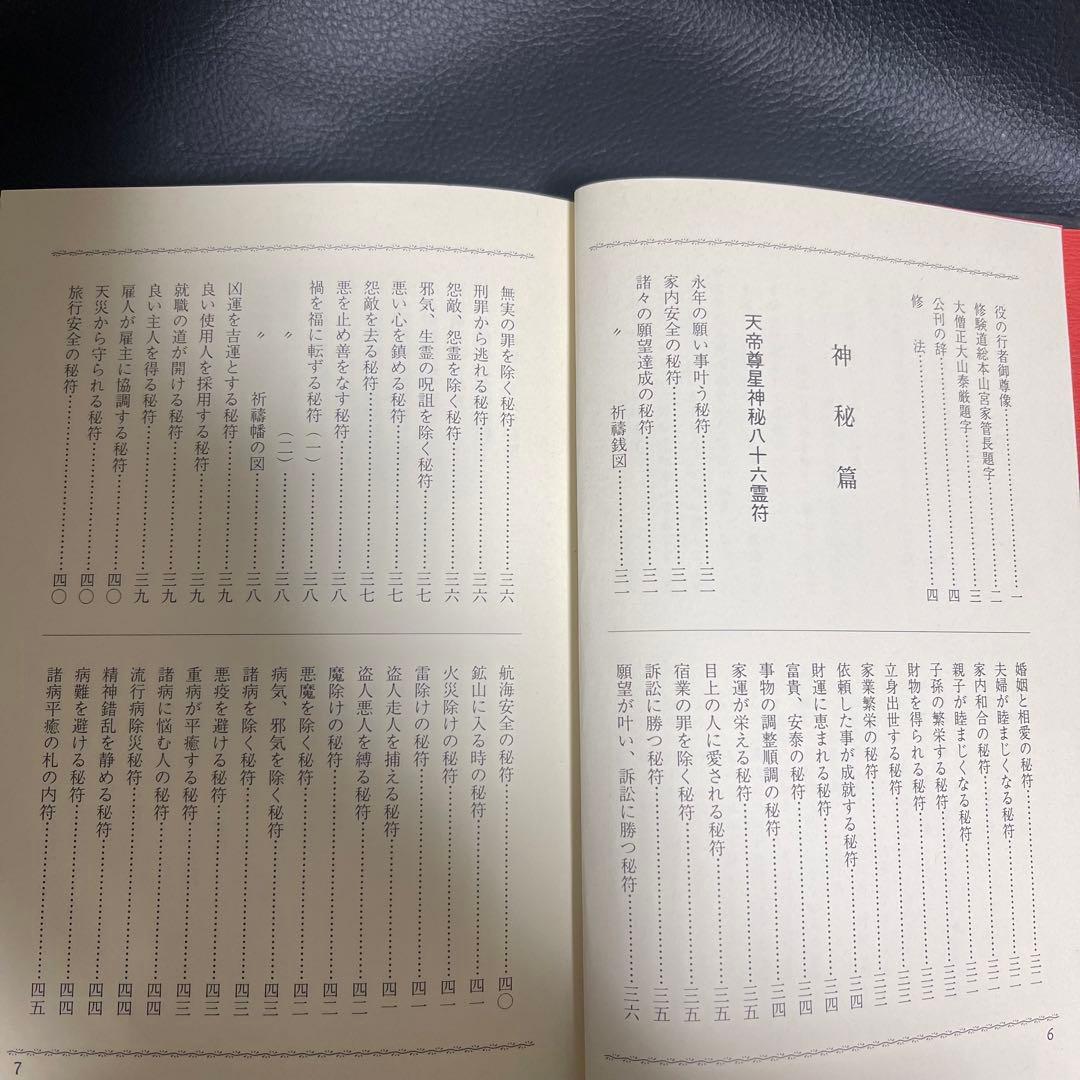 役の行者御尊像…………一
修験道総本山宮家管長題字…………二
大僧正大山泰厳題字…………三
公刊の辞…………四
修法…………四
神秘篇
天帝尊星神秘八十六霊符
永年の願い事叶う秘符…………三一
家内安全の秘符…………三一
諸々の願望達成の秘符…………三一
〃 祈禱銭図…………三一
婚姻と相愛の秘符…………三二
夫婦が睦まじくなる秘符…………三二
家内和合の秘符…………三二
親子が睦まじくなる秘符…………三二
子孫の繁栄する秘符…………三三
財物を得られる秘符…………三三
立身出世する秘符…………三三
家業繁栄の秘符…………三三
依頼した事が成就する秘符…………三四
財運に恵まれる秘符…………三四
富貴、安泰の秘符…………三四
事物の調整順調の秘符…………三四
家運が栄える秘符…………三五
目上の人に愛される秘符…………三五
宿業の罪を除く秘符…………三五
訴訟に勝つ秘符…………三五
願望が叶い、訴訟に勝つ秘符…………三六
6
無実の罪を除く秘符…………三六
刑罪から逃れる秘符…………三六
怨敵、怨霊を除く秘符…………三六
邪気、生霊の呪詛を除く秘符…………三七
悪い心を鎮める秘符…………三七
怨敵を去る秘符…………三七
悪を止め善をなす秘符…………三八
禍を福に転ずる秘符(一)…………三八
〃 〃 (二)…………三八
〃 祈禱幡の図…………三八
凶運を吉運とする秘符…………三九
良い使用人を採用する秘符…………三九
就職の道が開ける秘符…………三九
良い主人を得る秘符…………三九
雇人が雇主に協調する秘符…………四〇
天災から守られる秘符…………四〇
旅行安全の秘符…………四〇
航海安全の秘符…………四〇
鉱山に入る時の秘符…………四一
火災除けの秘符…………四一
雷除けの秘符…………四一
盗人走人を捕える秘符…………四一
盗人悪人を縛る秘符…………四二
魔除けの秘符…………四二
悪魔を除く秘符…………四二
病気、邪気を除く秘符…………四二
諸病を除く秘符…………四三
悪疫を避ける秘符…………四三
重病が平癒する秘符…………四三
諸病に悩む人の秘符…………四四
流行病除災秘符…………四四
精神錯乱を静める秘符…………四四
病難を避ける秘符…………四四
諸病平癒の札の内符…………四五
7